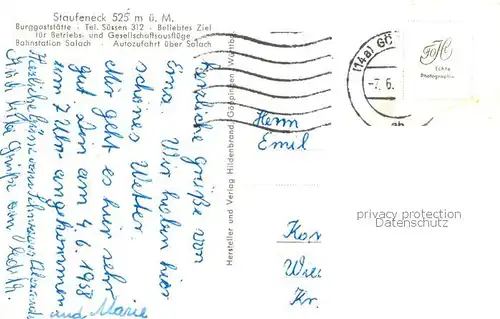 Staufeneck 525 m ü. M.
Burggaststätte · Tel. Süssen 312 · Beliebtes Ziel
für Betriebs- und Gesellschaftsausflüge
Bahnstation Salach · Autozufahrt über Salach
Herzliche Grüße von
Erna. Wir haben hier
schönes Wetter.
Mir geht es hier sehr
gut bin am 4.6.1958
um 7 Uhr angekommen
Herzliche Grüsse von
Grüße von
und Marie
Hersteller und Verlag Hildenbrand, Göppingen
(14a) GÖ
-7.6.
Echte
Photographie
Herrn
Emil
privacy protection
Datenschutz
Wie
Kr.